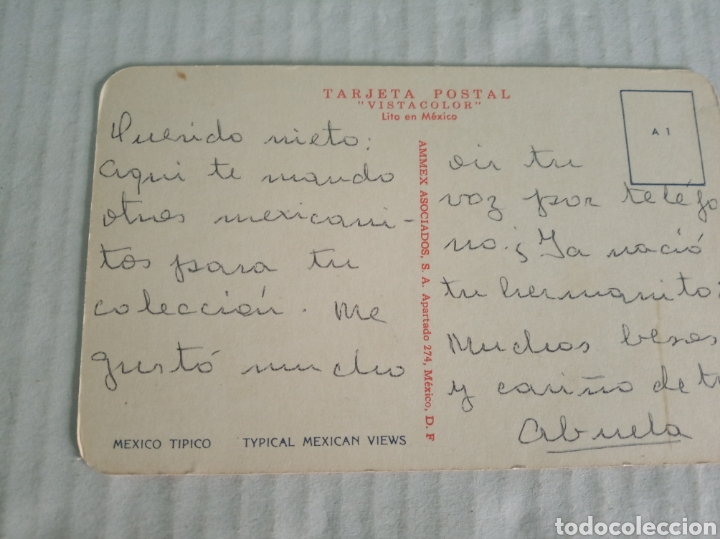 TARJETA POSTAL
"VISTACOLOR"
Lito en México
A 1
Querido nieto:
aqui te mando
otros mexicani-
tos para tu
colección. Me
gustó mucho
AMMEX ASOCIADOS, S. A. Apartado 274, México, D. F
oir tu
voz por teléfo
no. ¿Ya nació
tu hermanito?
Muchos besos
y cariño de tu
Abuela
MEXICO TIPICO TYPICAL MEXICAN VIEWS
todocoleccion